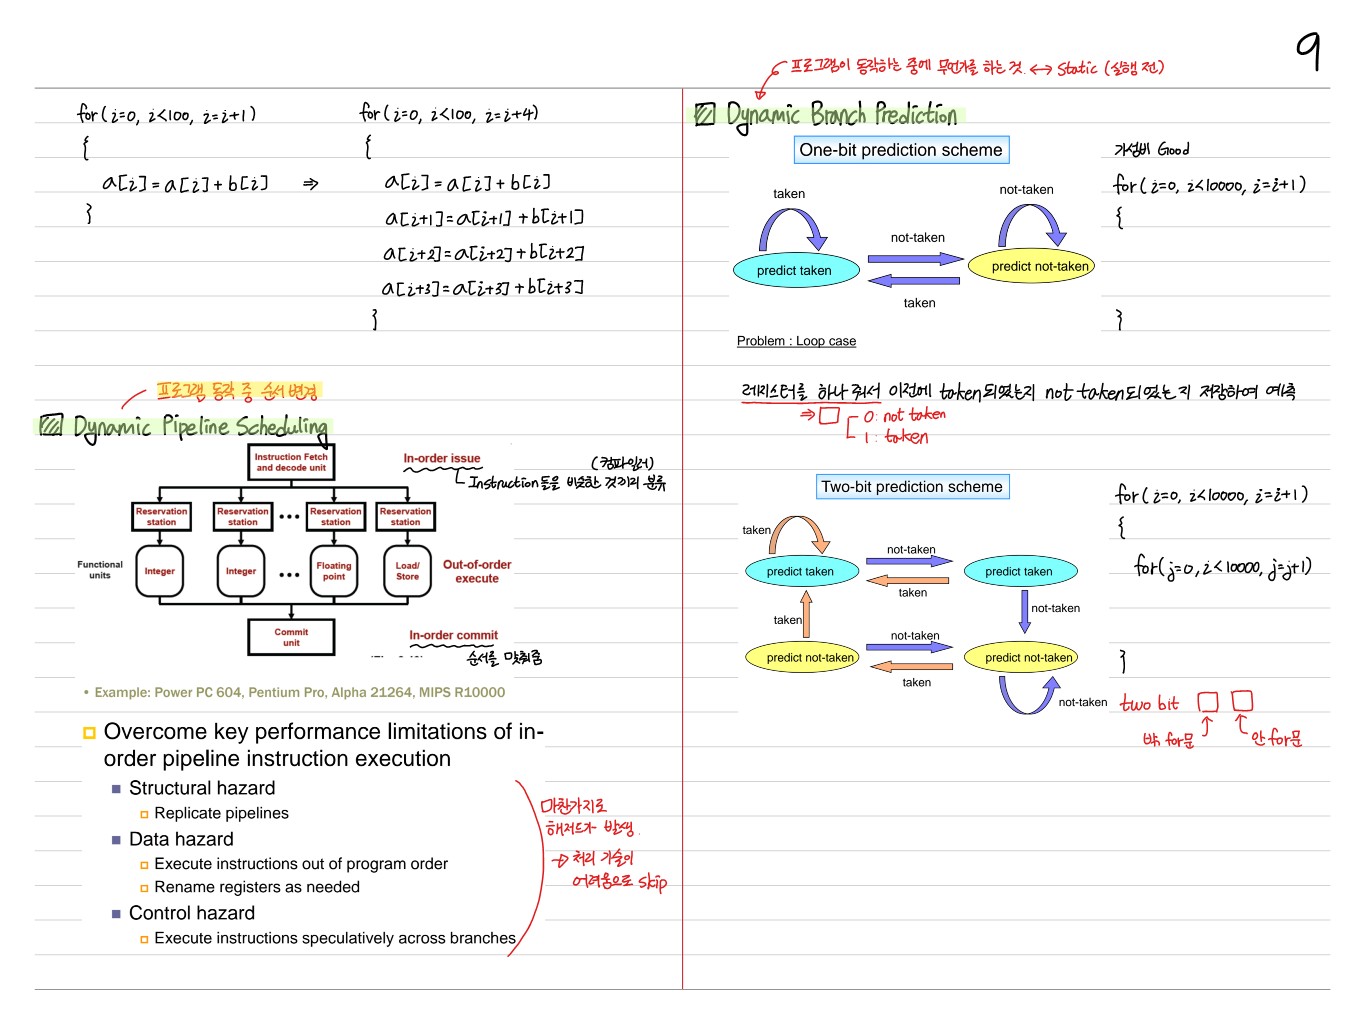 9
for(i=0, i<100, i=i+1)
{
a[i]=a[i]+b[i]
}
⇒
for(i=0, i<100, i=i+4)
{
a[i]=a[i]+b[i]
a[i+1]=a[i+1]+b[i+1]
a[i+2]=a[i+2]+b[i+2]
a[i+3]=a[i+3]+b[i+3]
}
프로그램 동작 중 순서 변경
Dynamic Pipeline Scheduling
Instruction Fetch
and decode unit
In-order issue
(컴파일러)
Instruction들을 비슷한 것끼리 분류
Reservation
station
Reservation
station
•••
Reservation
station
Reservation
station
Functional
units
Integer
Integer
•••
Floating
point
Load/
Store
Out-of-order
execute
Commit
unit
In-order commit
순서를 맞춰줌
• Example: Power PC 604, Pentium Pro, Alpha 21264, MIPS R10000
Overcome key performance limitations of in-
order pipeline instruction execution
Structural hazard
Replicate pipelines
Data hazard
Execute instructions out of program order
Rename registers as needed
Control hazard
Execute instructions speculatively across branches
마찬가지로
해저드가 발생.
→ 처리 기술이
어려움으로 skip
프로그램이 동작하는 중에 무언가를 하는 것. ↔ Static (실행 전)
Dynamic Branch Prediction
One-bit prediction scheme
taken
not-taken
not-taken
predict taken
predict not-taken
taken
Problem : Loop case
가성비 Good
for(i=0, i<10000, i=i+1)
{
}
레지스터를 하나 둬서 이전에 taken되었는지 not taken되었는지 저장하여 예측
⇒ □ 0: not taken
1: taken
Two-bit prediction scheme
taken
not-taken
predict taken
predict taken
taken
taken
not-taken
not-taken
predict not-taken
predict not-taken
taken
not-taken
for(i=0, i<10000, i=i+1)
{
for(j=0, i<10000, j=j+1)
}
two bit □ □
밖 for문
안 for문